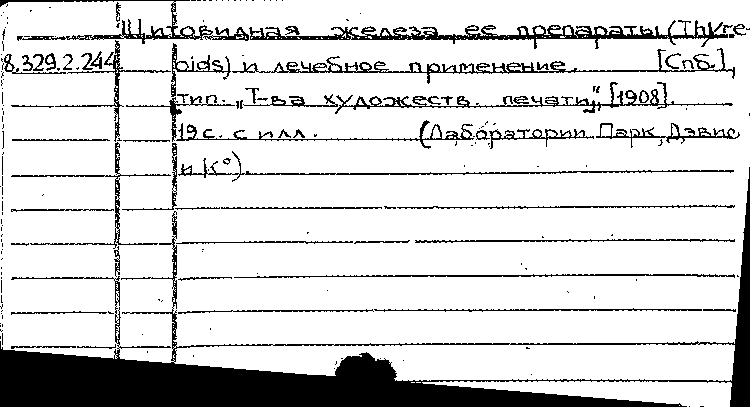 Щитовидная железа, ее препараты (Thyre-
8.329.2.244 oids) и лечебное применение. [Спб.],
тип. „Т-ва художеств. печати", [1908].
19 с. с илл. (Лаборатории Парк, Дэвис
и К°).